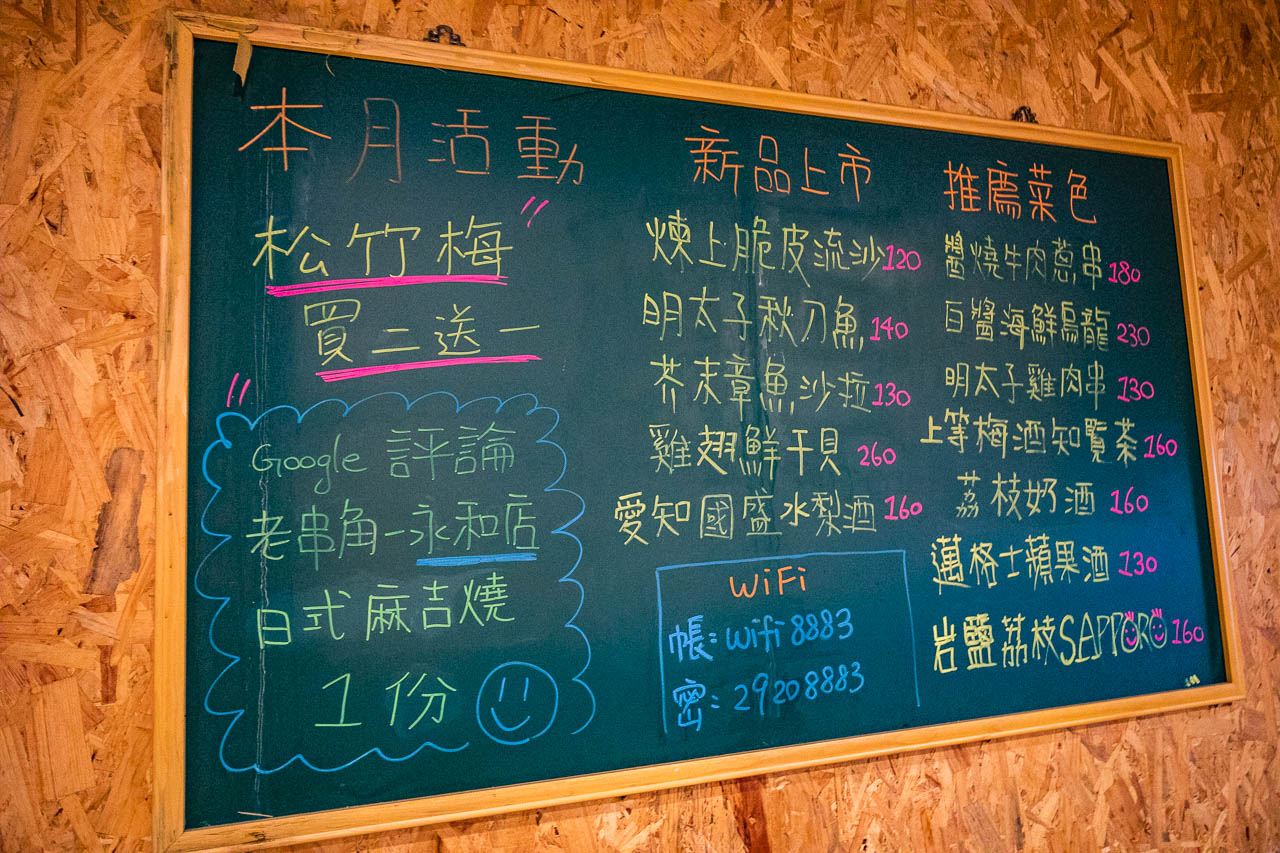 本月活動
松竹梅
買二送一
Google 評論
老串角-永和店
日式麻吉燒
1份
新品上市
煉上脆皮流沙120
明太子秋刀魚140
芥末章魚沙拉130
雞翅鮮干貝 260
愛知國盛水梨酒160
WiFi
帳:wifi8883
密:29208883
推薦菜色
醬燒牛肉蔥串180
白醬海鮮烏龍230
明太子雞肉串130
上等梅酒知覽茶160
荔枝奶酒 160
邁格士蘋果酒130
岩鹽荔枝SAPPORO160